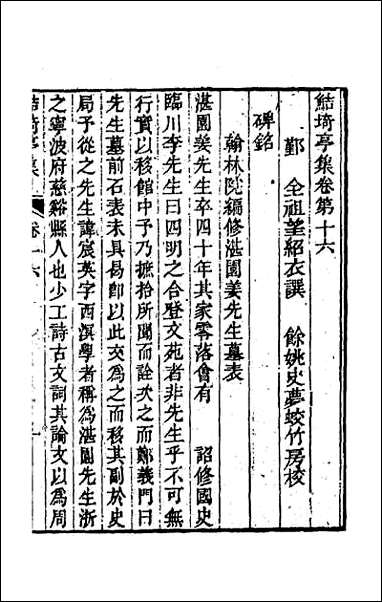 鮚埼亭集卷第十六
鄞　全祖望紹衣譔　餘姚史夢蛟竹房校
碑銘
翰林院編修湛園姜先生墓表
湛園姜先生卒四十年其家零落會有　詔修國史
臨川李先生曰四明之合登文苑者非先生乎不可無
行實以移館中予乃摭拾所聞而詮次之而鄭義門曰
先生墓前石表未具曷卽以此文為之而移其副於史
局予從之先生諱宸英字西溟學者稱為湛園先生浙
之寧波府慈谿縣人也少工詩古文詞其論文以為周
鮚埼亭集　卷十六